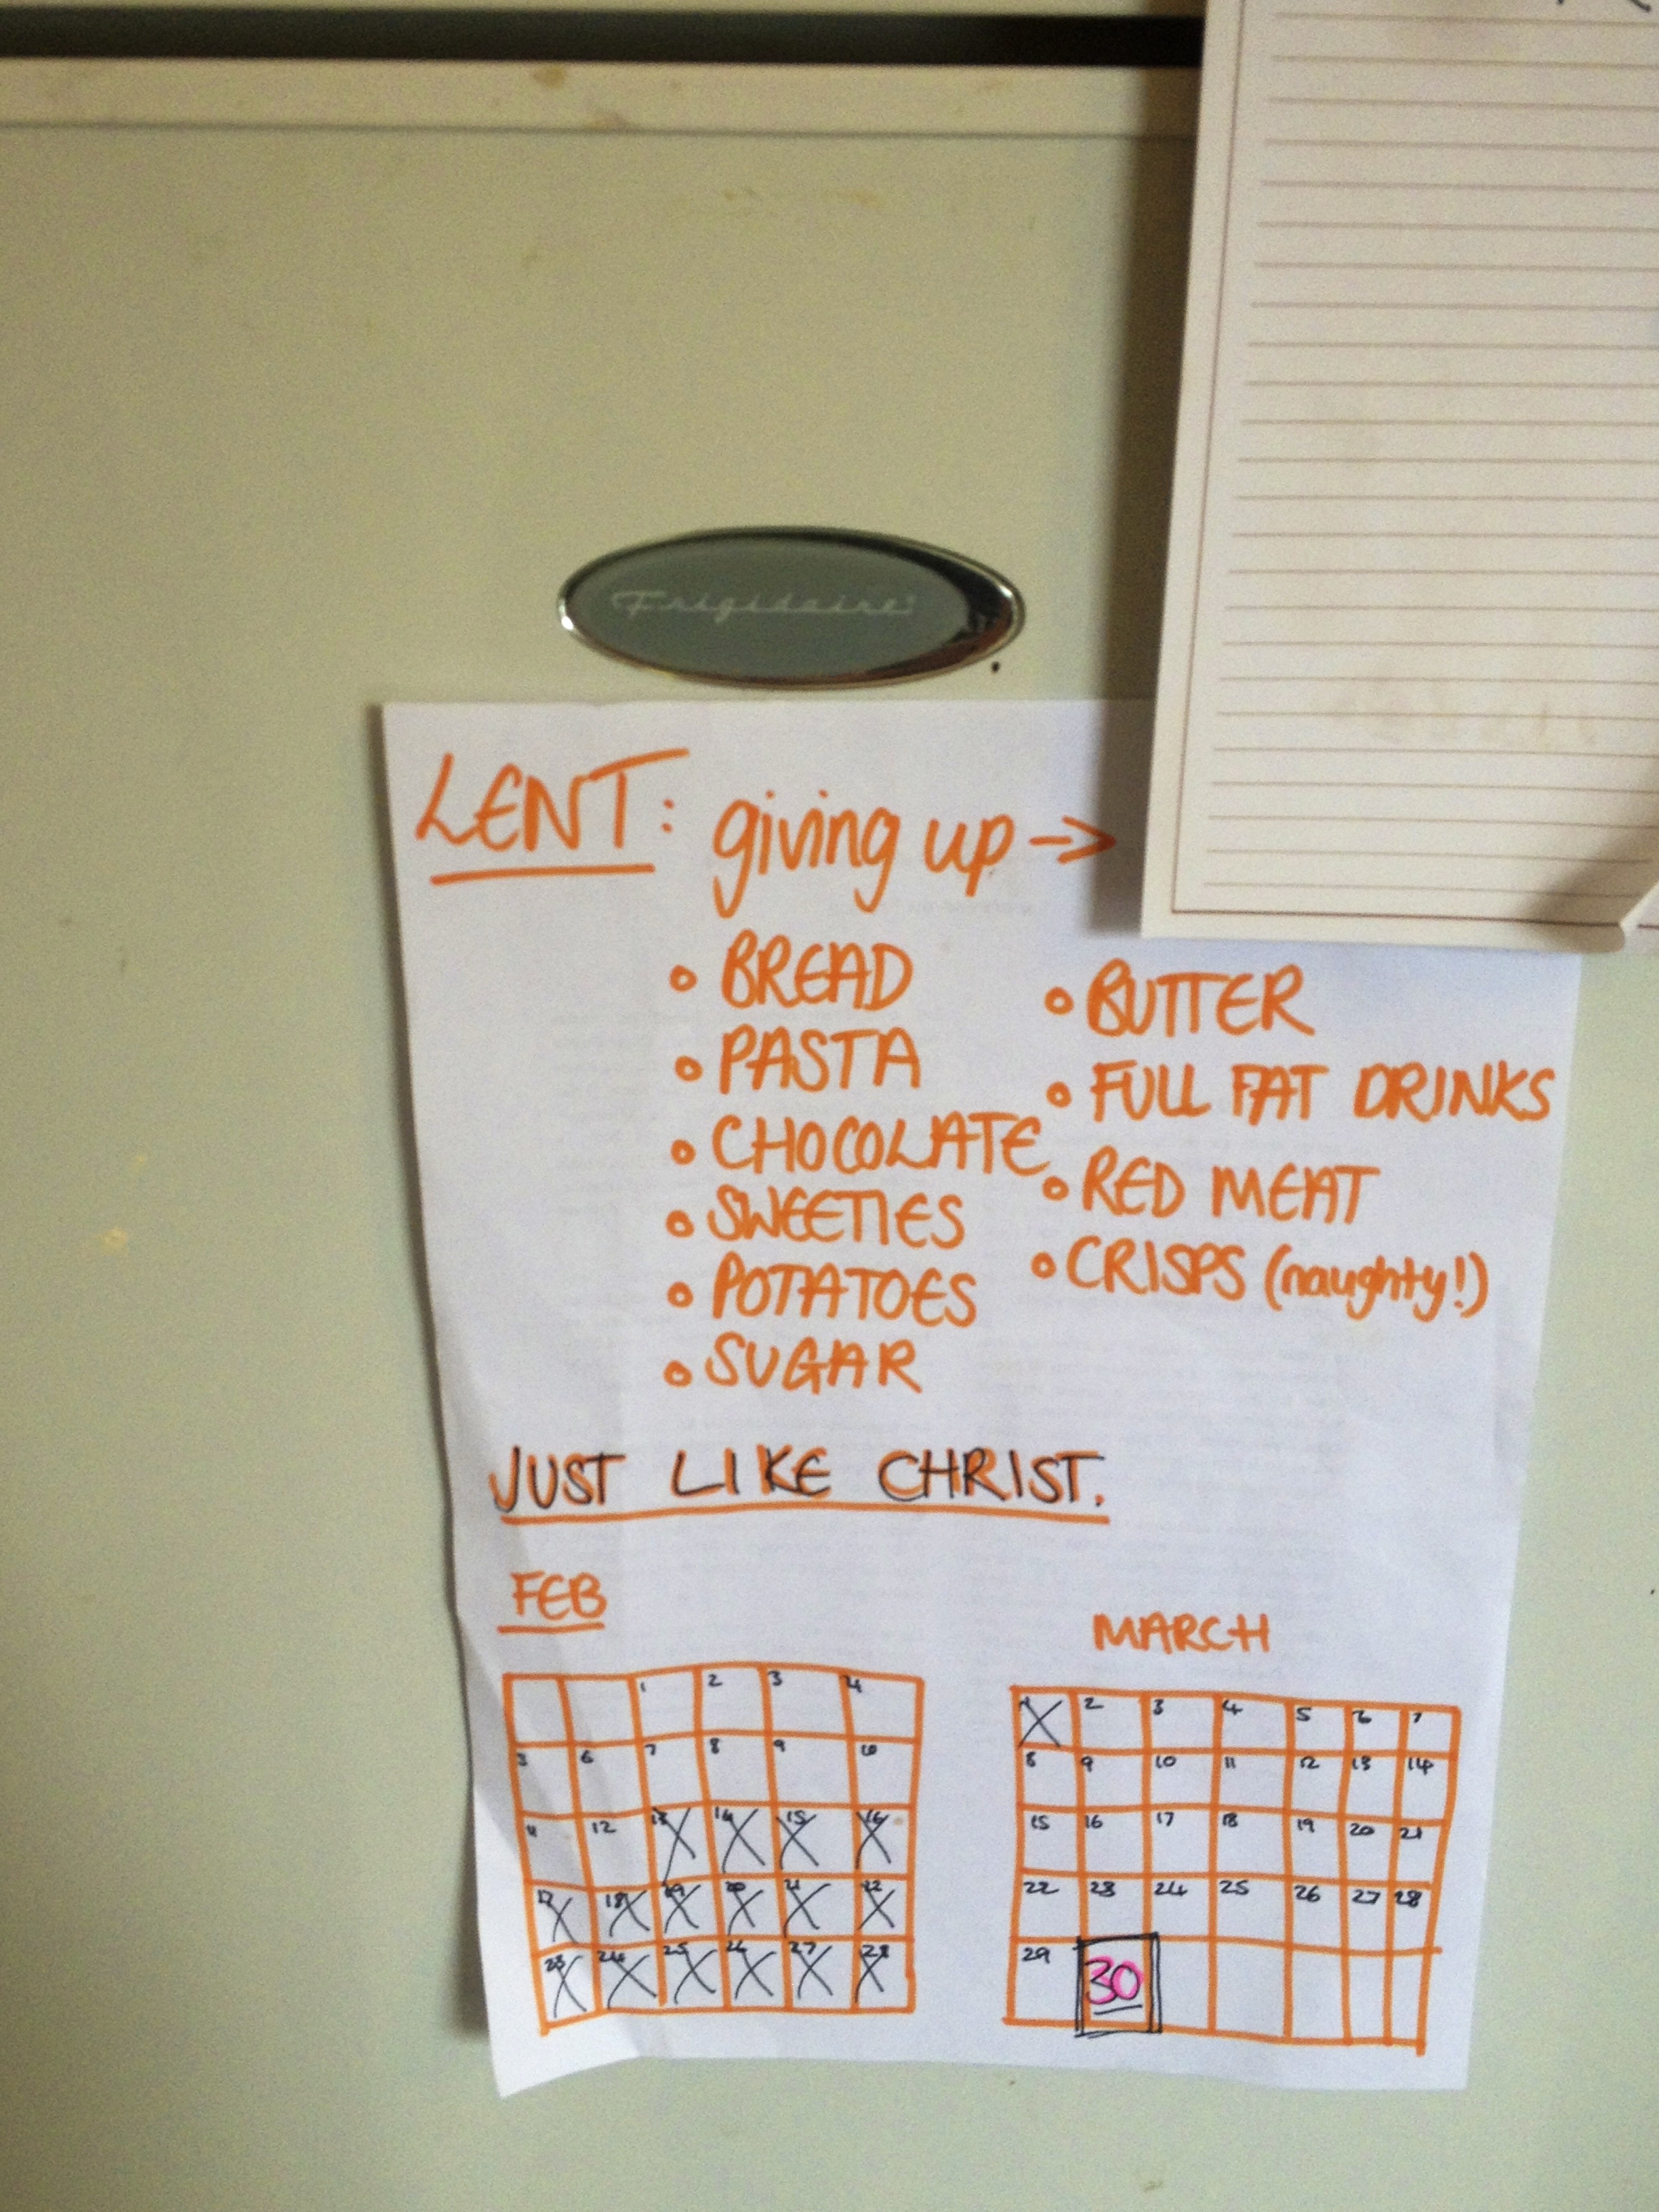 Frigidaire
LENT: giving up ->
• BREAD
• PASTA
• CHOCOLATE
• SWEETIES
• POTATOES
• SUGAR
• BUTTER
• FULL FAT DRINKS
• RED MEAT
• CRISPS (naughty!)
JUST LIKE CHRIST.
FEB
1 2 3 4
5 6 7 8 9 10
11 12 13 14 15 16
17 18 19 20 21 22
23 24 25 26 27 28
MARCH
1 2 3 4 5 6 7
8 9 10 11 12 13 14
15 16 17 18 19 20 21
22 23 24 25 26 27 28
29 30